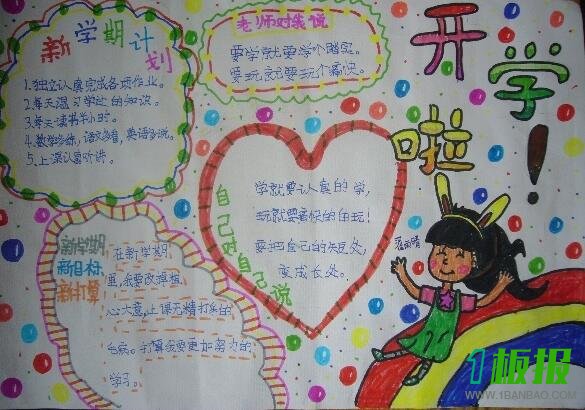 开学啦！
新学期计划
1.独立认真完成各项作业。
2.每天温习学过的知识。
3.每天读书半小时。
4.数学多练，语文多看，英语多说。
5.上课认真听讲。
老师对我说
要学就要学个踏实，
要玩就要玩个痛快。
自己对自己说
学就要认真的学，
玩就要痛快的去玩！
要把自己的短处，
变成长处。
新学期
新目标
新打算
在新学期
里，我要改掉粗
心大意，上课无精打采的
毛病。打算我要更加努力的
学习。
1板报
WWW.1BANBAO.COM